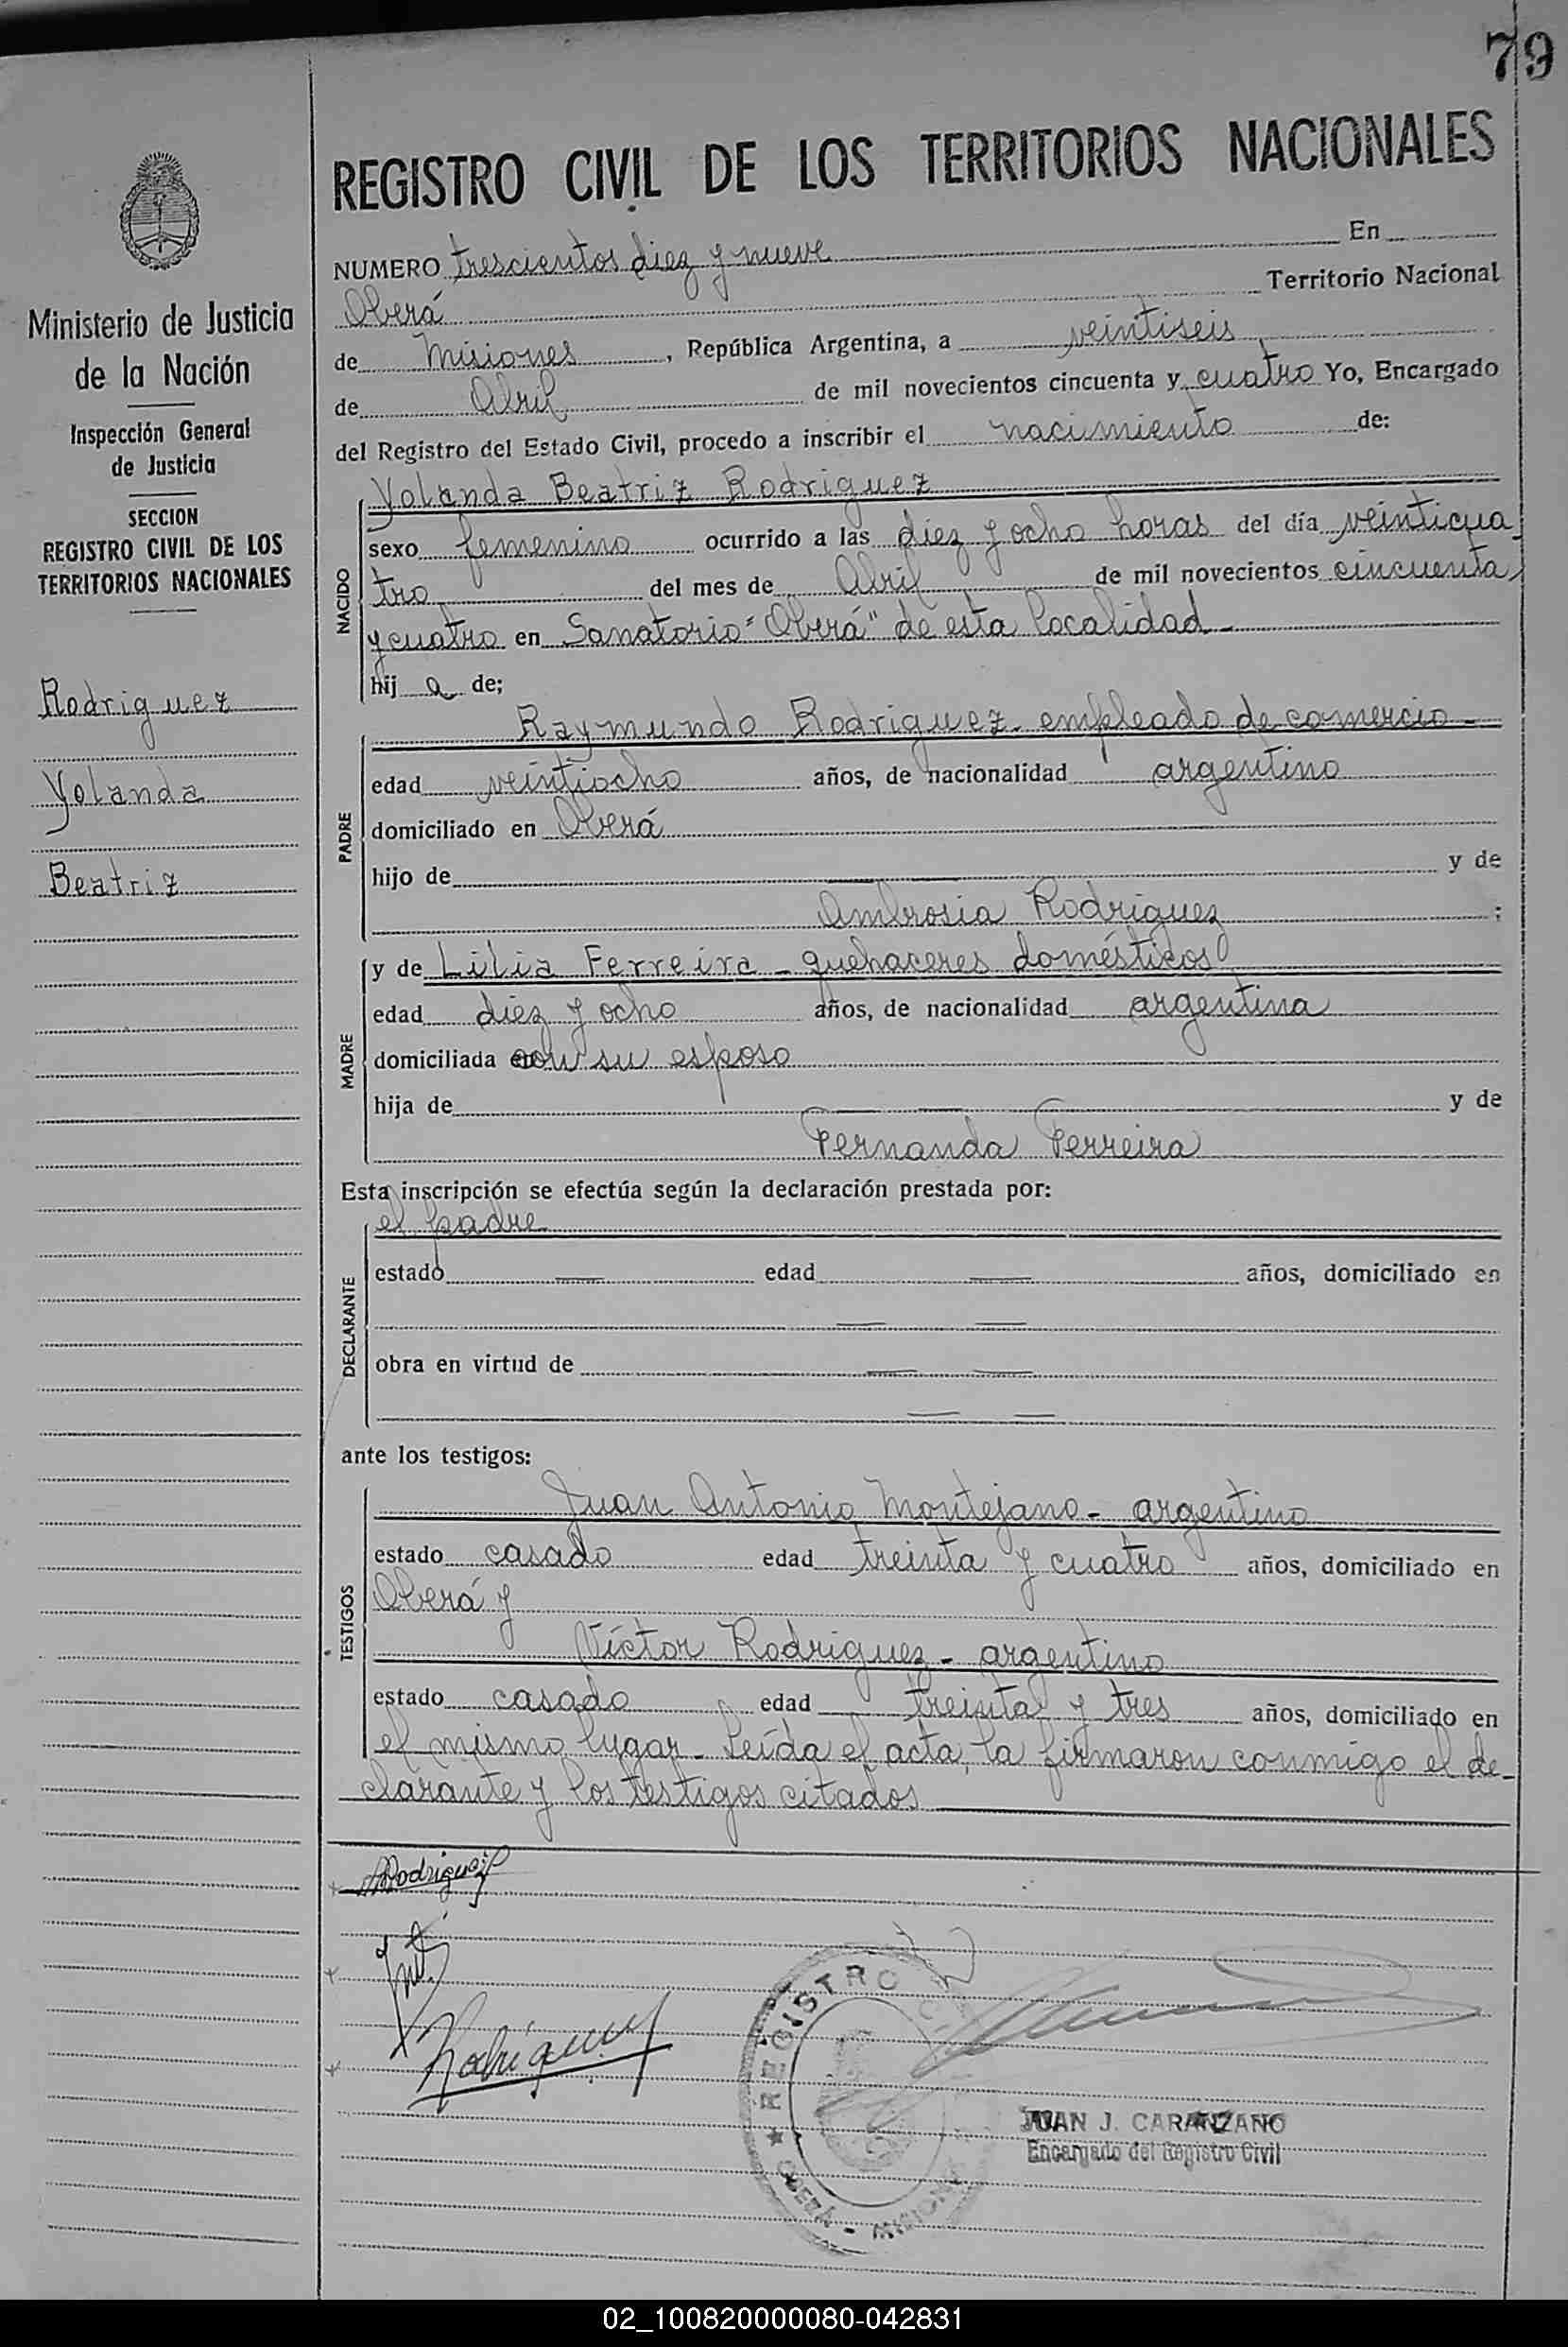 79
REGISTRO CIVIL DE LOS TERRITORIOS NACIONALES
Ministerio de Justicia
de la Nación
Inspección General
de Justicia
SECCION
REGISTRO CIVIL DE LOS
TERRITORIOS NACIONALES
Rodriguez
Yolanda
Beatriz
NUMERO trescientos diez y nueve En
Oberá Territorio Nacional
de Misiones, República Argentina, a veintiseis
de Abril de mil novecientos cincuenta y cuatro Yo, Encargado
del Registro del Estado Civil, procedo a inscribir el nacimiento de:
NACIDO
Yolanda Beatriz Rodriguez
sexo femenino ocurrido a las diez y ocho horas del día veinticua
tro del mes de Abril de mil novecientos cincuenta
y cuatro en Sanatorio "Oberá" de esta localidad
hij a de;
PADRE
Raymundo Rodriguez - empleado de comercio -
edad veintiocho años, de nacionalidad argentino
domiciliado en Oberá
hijo de — y de
Ambrosia Rodriguez ;
MADRE
y de Lilia Ferreira - quehaceres domésticos
edad diez y ocho años, de nacionalidad argentina
domiciliada con su esposo
hija de — — y de
Fernanda Ferreira
Esta inscripción se efectúa según la declaración prestada por:
DECLARANTE
el padre
estado — edad — años, domiciliado en
— —
obra en virtud de — —
— —
ante los testigos:
TESTIGOS
Juan Antonio Montejano - argentino
estado casado edad treinta y cuatro años, domiciliado en
Oberá y
Víctor Rodriguez - argentino
estado casado edad treinta y tres años, domiciliado en
el mismo lugar - Leída el acta, la firmaron conmigo el de-
clarante y los testigos citados
Rodriguez
Rodriguez
REGISTRO
OBERÁ - MISIONES
JUAN J. CARANZANO
Encargado del Registro Civil
02_100820000080-042831